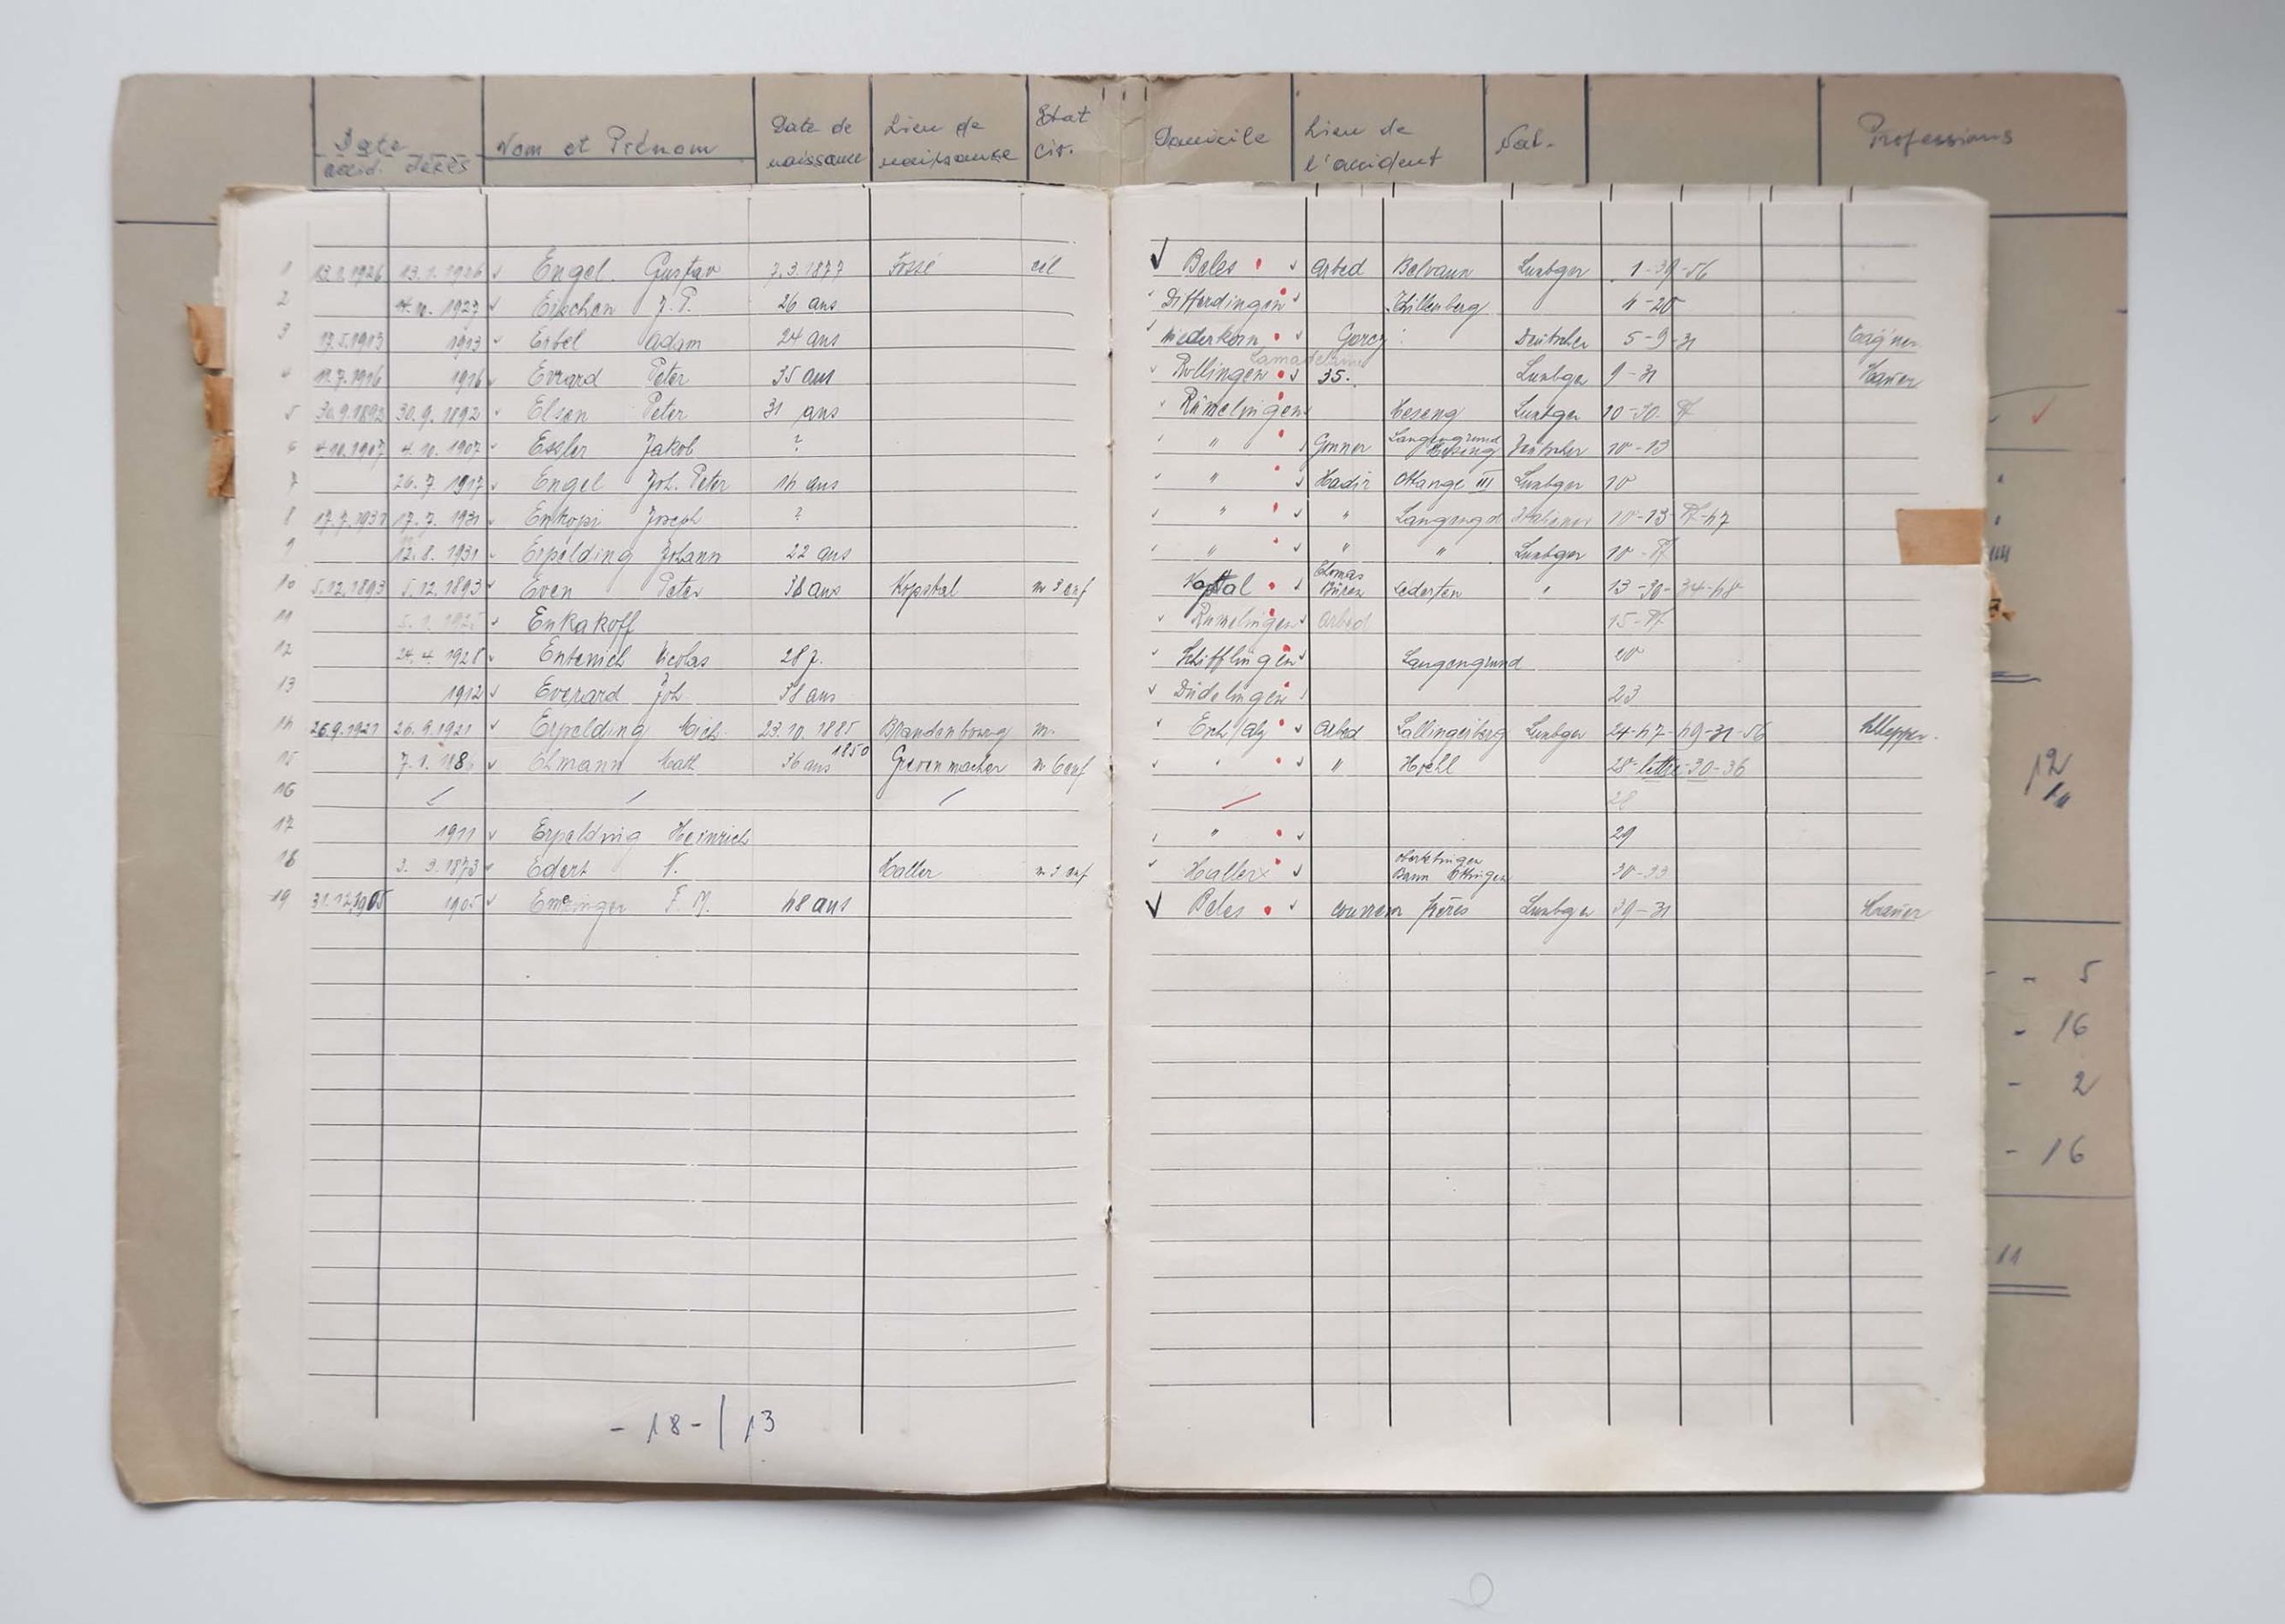 Date Nom et Prénom Date de naissance Lieu de naissance Etat civ. Domicile Lieu de l'accident Nat. Professions
accid. décès
1 13.1.1926 13.1.1926 Engel Gustav 7.3.1877 Fossé cél Beles Arbed Belvaux Luxbger 1-39-56
2 4.10.1927 Eischen J.P. 26 ans Differdingen Thillenberg 4-20
3 1913 Ertel Adam 24 ans Niederkorn Gorcy Deutscher 5-9-31
Lamadelaine
4 11.7.1916 1916 Evrard Peter 35 ans Rollingen 35. Luxbger 9-31 Hauer
5 30.9.1892 30.9.1892 Elsen Peter 31 ans Rümelingen Heseng Luxbger 10-30
6 4.10.1907 4.10.1907 Essler Jakob ? " Gonner Langengrund Deutscher 10-13
7 26.7.1917 Engel Joh. Peter 14 ans " Hadir Ottange III Luxbger 10
8 17.7.1931 17.7.1931 Enkopi Joseph ? " " Langengd Italiener 10-13 -47
9 12.8.1931 Erpelding Johann 22 ans " " " Luxbger 10
10 5.12.1893 5.12.1893 Even Peter 38 ans Kopstal m 3 enf Kopstal Büren Lederten 13-30-34-48
11 Enkakoff Rümelingen Arbed 15
12 24.4.1928 Entenich Nicolas 28 J. Schifflingen Langengrund 20
13 1912 Everard Joh. 38 ans Düdelingen 23
14 26.9.1921 26.9.1921 Erpelding Mich. 23.10.1885 Brandenbourg m. Esch/Alz Arbed Lallingerberg Luxbger 24-47-49-31-56 Schlepper
15 Ehmann Math 36 ans 1850 Grevenmacher m 6 enf " " Hoehl 28-lettre-30-36
16 28
17 1911 Erpelding Heinrich " 29
18 3.9.1873 Edert N. Haller Haller 30-33
19 31.12.1905 1905 Emeringer F. M. 48 ans Beles frères Luxbger 39-31 Hauer
-18-/13
12
- 5
- 16
- 2
- 16
11